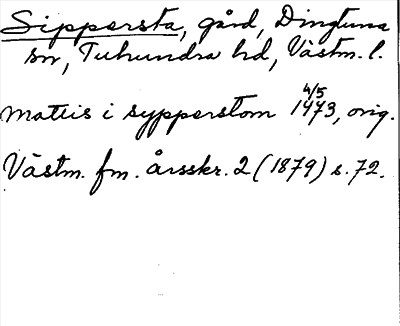 Sippersta, gård, Dingtuna
sn, Tuhundra hd, Västm. l.
4/5
Mattis i sypperstom 1473, orig.
Västm. fm. årsskr. 2 (1879) s. 72.